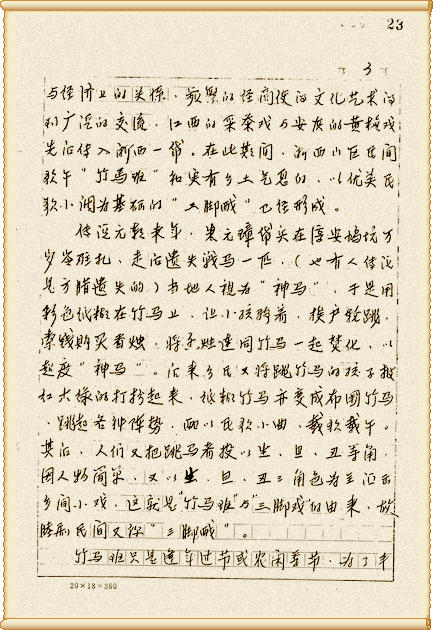 23
3
与经济上的关系，频繁的经商使的文化艺术得
到广泛的交流，江西的采茶戏与安庆的黄梅戏
先后传入浙西一带。在此期间，浙西山区民间
歌午“竹马班”和实有乡土气息的，以优美民
歌小调为基础的“三脚戏”已经形成。
传说元朝末年，朱元璋带兵在淳安
岁岑形扎，走后遗失战马一匹，（也有人传说
是方腊遗失的）当地人视为“神马”，于是用
彩色纸糊在竹马上，让小孩骑着，挨户轮跳，
索钱购买香烛，将香烛连同竹马一起焚化，以
超度“神马”。后来乡民又将跳竹马的孩子披
红大绿的打扮起来，纸糊竹马亦变成布围竹马
，跳起各种阵势，配以民歌小曲，载歌载午。
其后，人们又把跳马者按以生、旦、丑等角，
因人物简单，又以生、旦、丑三角色为主
乡间小戏，这就是“竹马班”与“三脚戏”的由来，故
睦剧民间又称“三脚戏”。
竹马班只是逢年过节或农闲季节，为了丰
20×18＝360